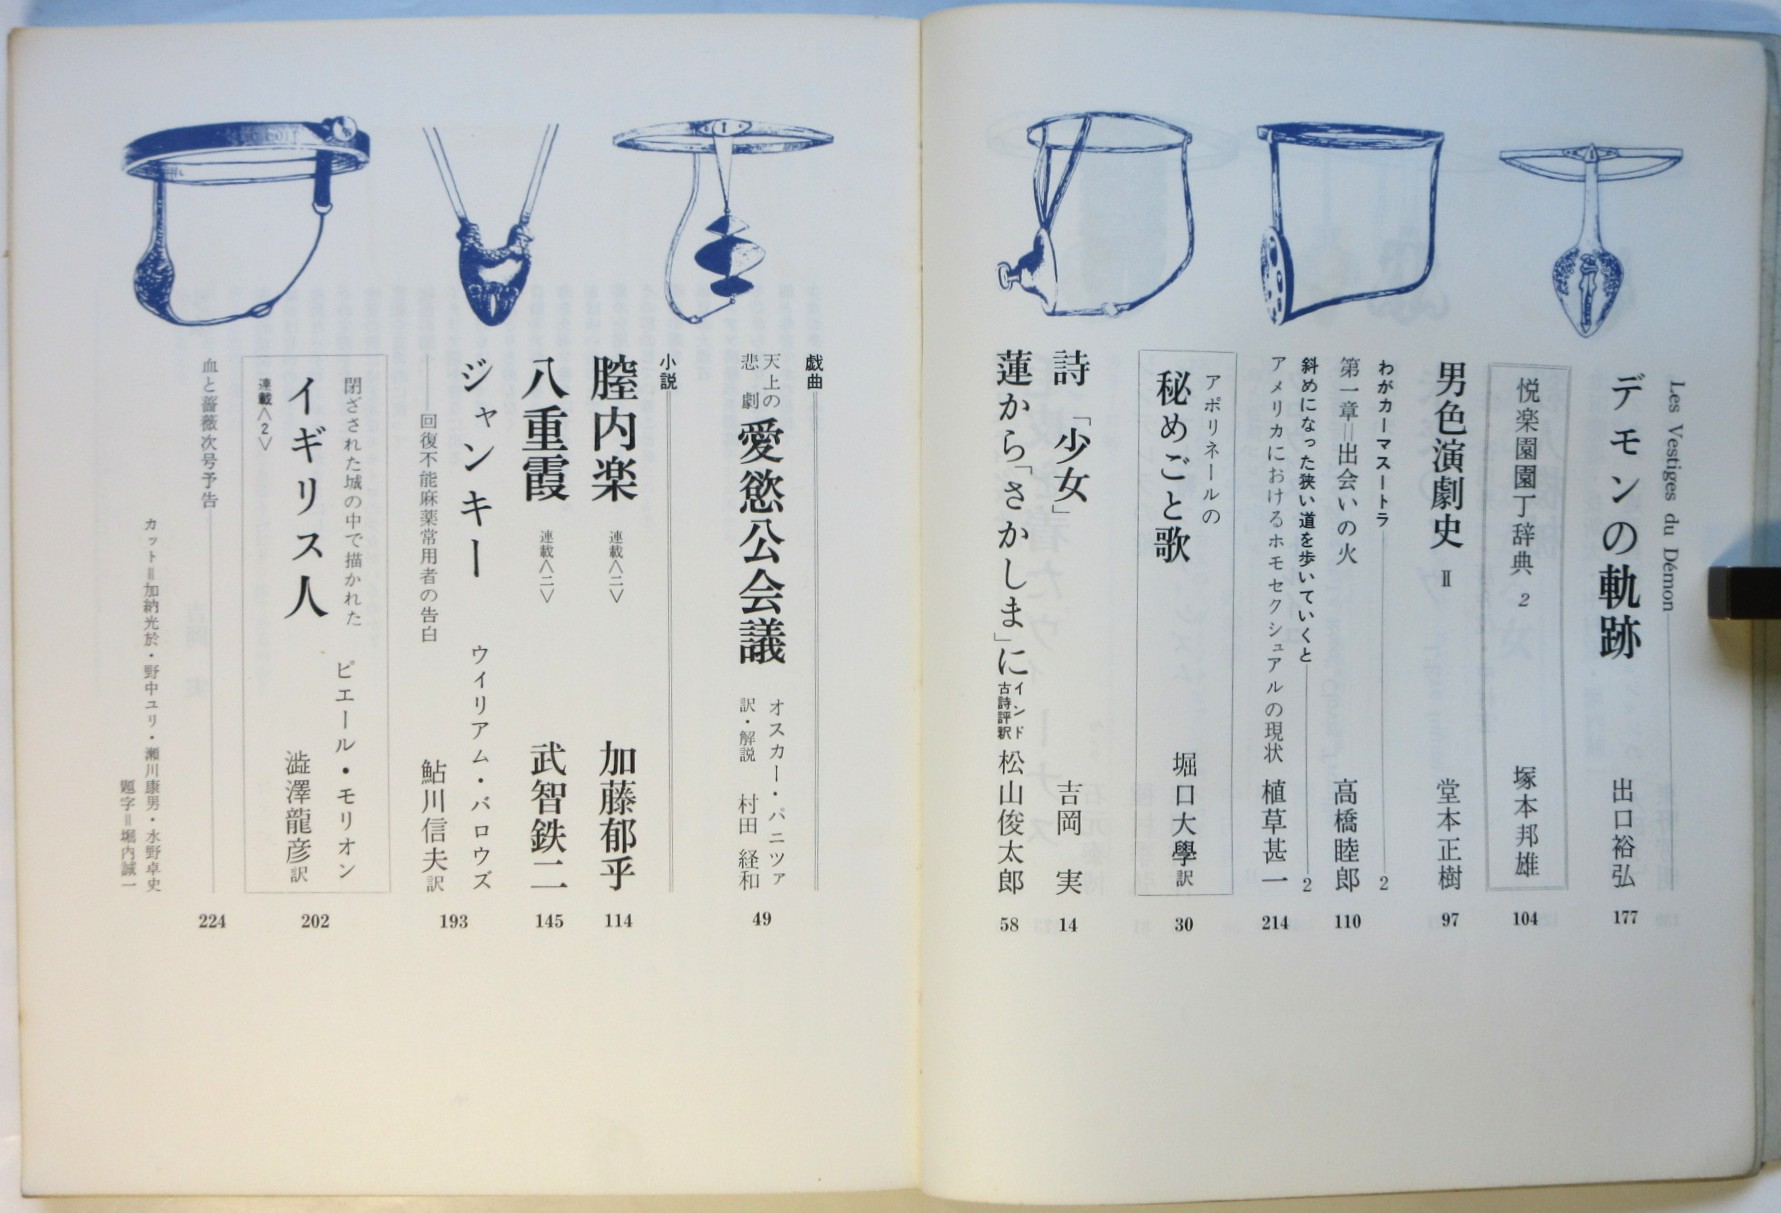 Les Vestiges du Démon
デモンの軌跡 出口裕弘 177
悦楽園園丁辞典 2 塚本邦雄 104
男色演劇史 Ⅱ 堂本正樹 97
わがカーマスートラ 2
第一章=出会いの火 高橋睦郎 110
斜めになった狭い道を歩いていくと 2
アメリカにおけるホモセクシュアルの現状 植草甚一 214
アポリネールの
秘めごと歌 堀口大學訳 30
詩「少女」 吉岡実 14
蓮から「さかしま」に インド古詩評釈 松山俊太郎 58
戯曲
天上の悲劇 愛慾公会議 オスカー・パニツァ
訳・解説 村田経和 49
小説
膣内楽 連載〈二〉 加藤郁乎 114
八重霞 連載〈二〉 武智鉄二 145
ジャンキー ウイリアム・バロウズ
——回復不能麻薬常用者の告白 鮎川信夫訳 193
閉ざされた城の中で描かれた
イギリス人 ピエール・モリオン
連載〈2〉 澁澤龍彦訳 202
血と薔薇次号予告 224
カット=加納光於・野中ユリ・瀬川康男・水野卓史
題字=堀内誠一